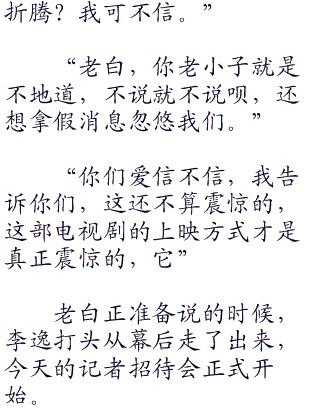 折腾？我可不信。”
“老白，你老小子就是
不地道，不说就不说呗，还
想拿假消息忽悠我们。”
“你们爱信不信，我告
诉你们，这还不算震惊的，
这部电视剧的上映方式才是
真正震惊的，它”
老白正准备说的时候，
李逸打头从幕后走了出来，
今天的记者招待会正式开
始。